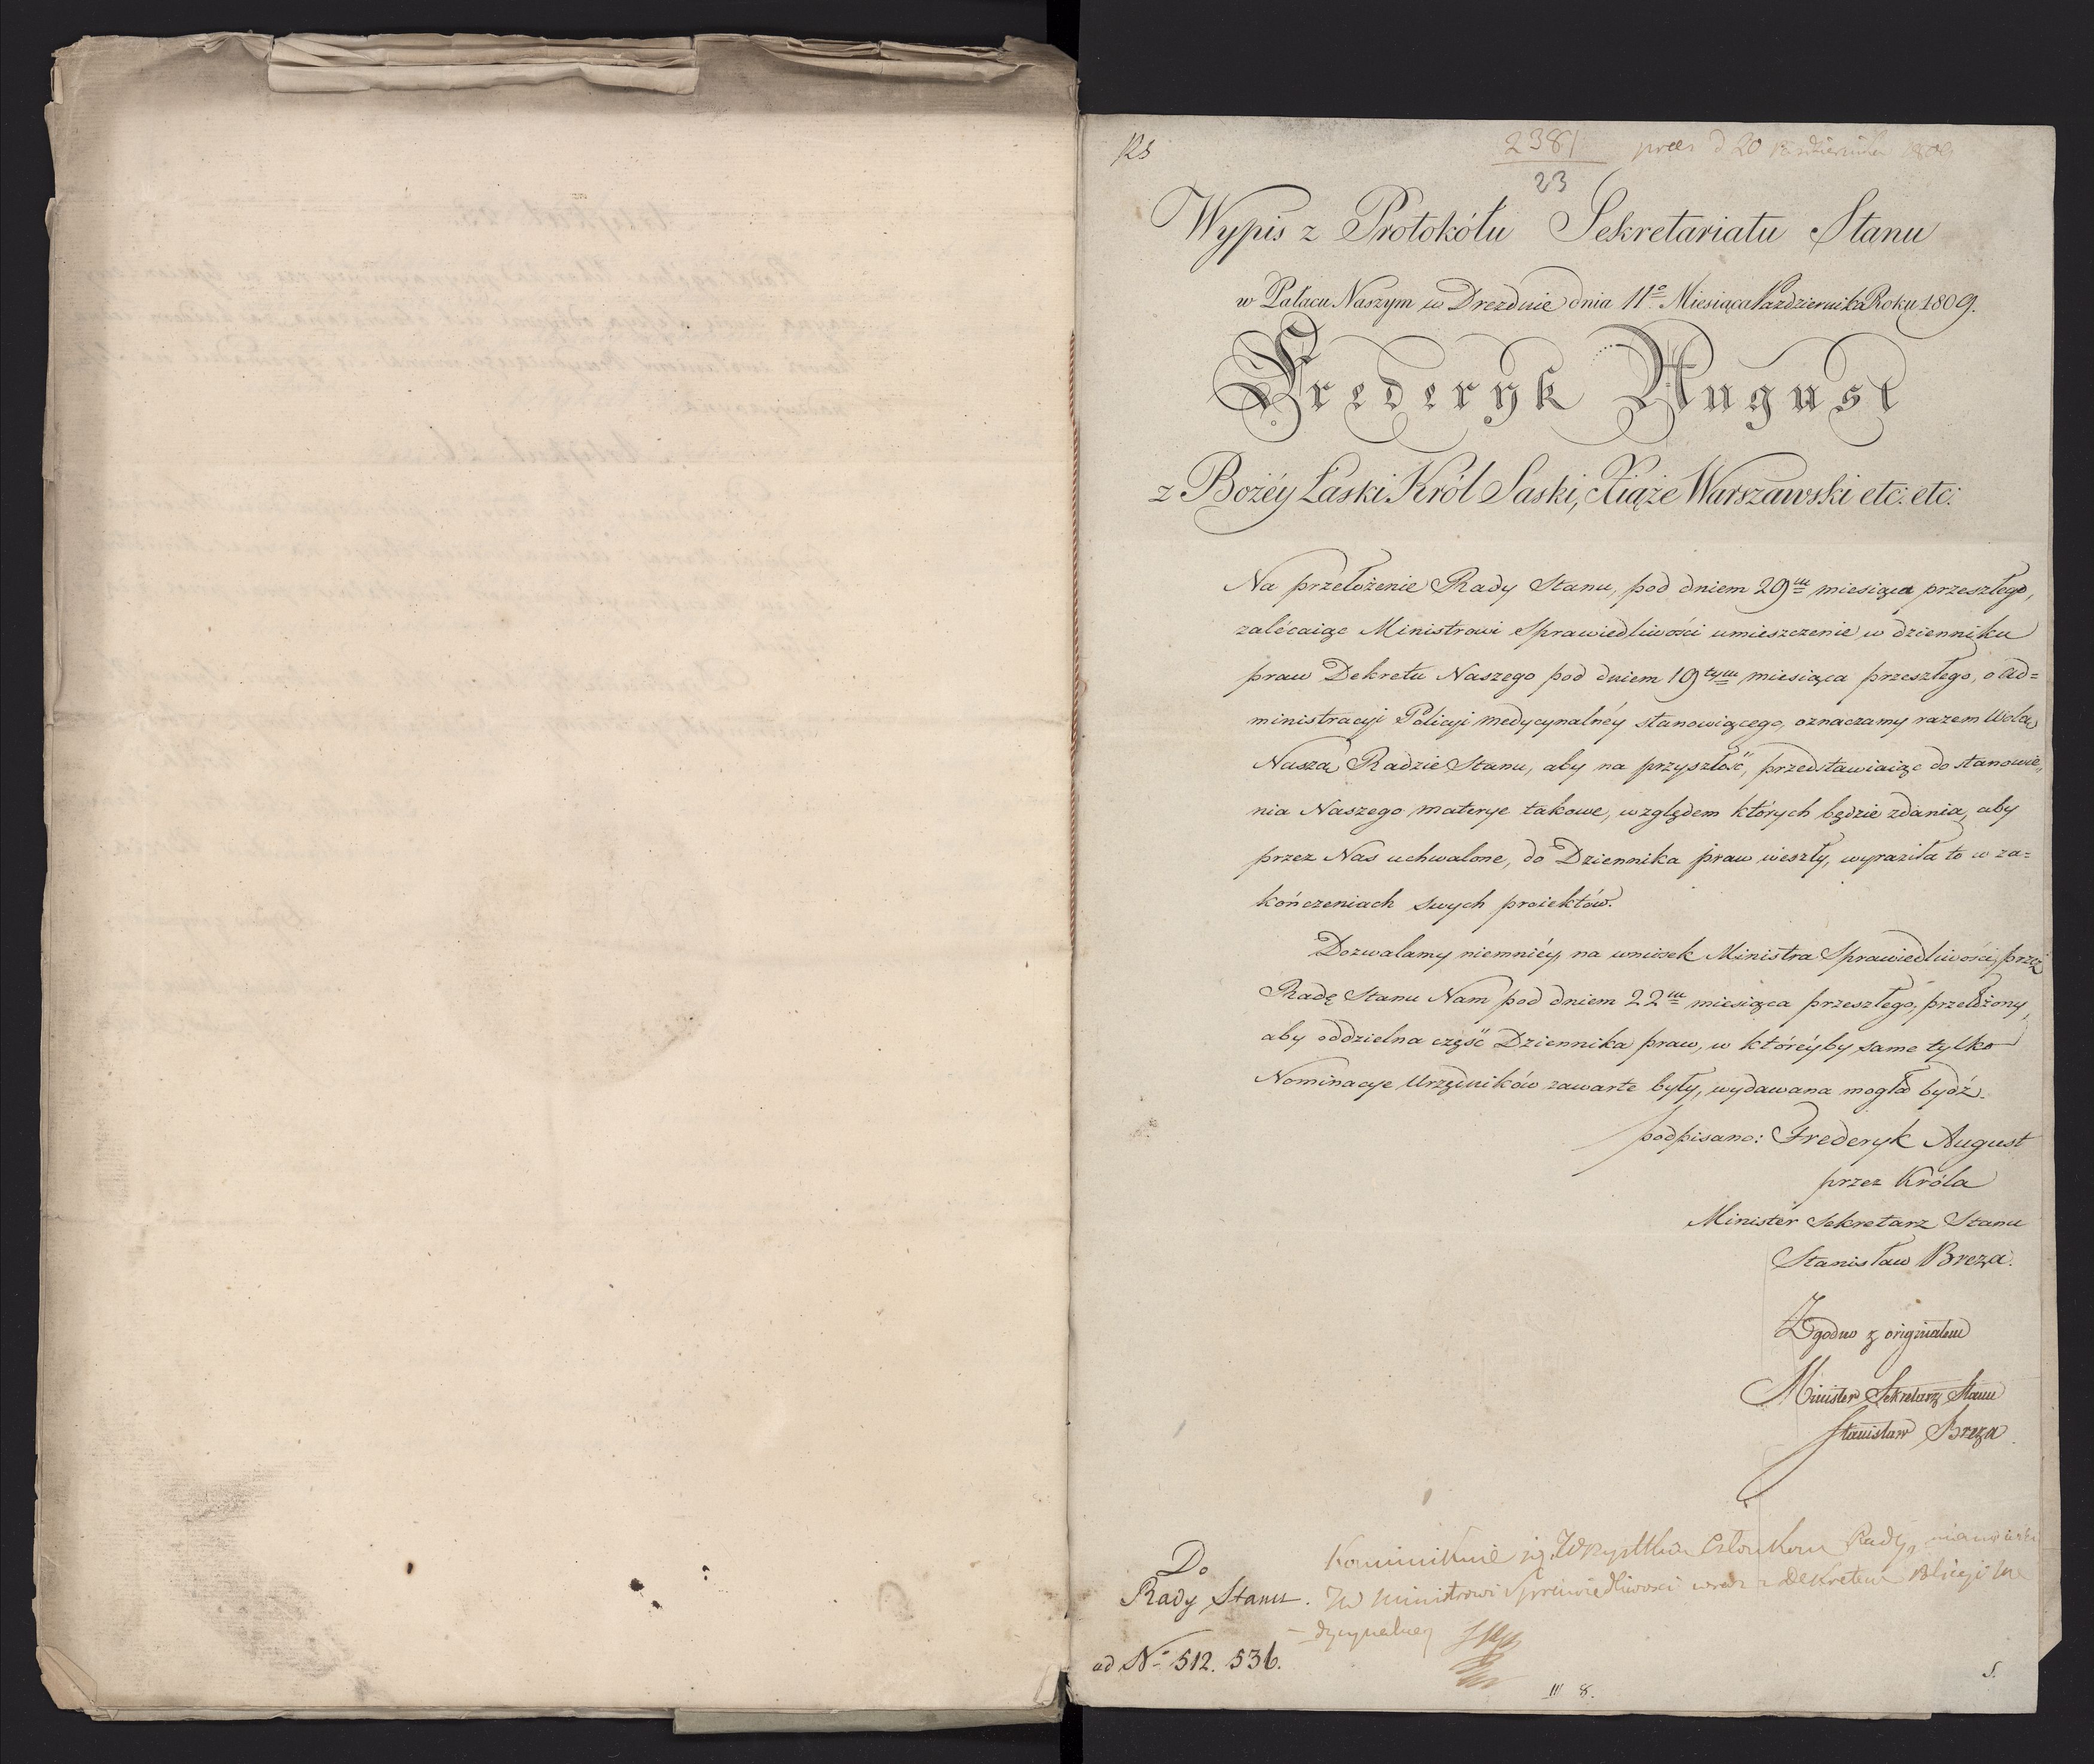 128
2381
23
prees d 20 Października 1809
Wypis z Protokółu Sekretariatu Stanu
w Pałacu Naszym w Dreznie dnia 11o Miesiąca Października Roku 1809.
Frederyk August
z Bożéy Łaski Król Saski, Xiąże Warszawski etc: etc:
Na przełożenie Rady Stanu, pod dniem 29m miesiąca przeszłego,
zalécaiąc Ministrowi Sprawiedliwości umieszczenie w dzienniku
praw Dekretu Naszego pod dniem 19tym miesiąca przeszłego, o Ad=
ministracyi Policyi medycynalnéy stanowiącego, oznaczamy razem Wolą
Naszą Radzie Stanu, aby na przyszłość, przedstawiaiąc do stanowie„
nia Naszego materye takowe, względem których będzie zdania, aby
przez Nas uchwalone, do Dziennika praw weszły, wyraziła to w za=
kończeniach swych proiektów.
Dozwalamy niemniéy, na wniosek Ministra Sprawiedliwości, przez
Radę Stanu Nam pod dniem 22m miesiąca przeszłego, przełożony,
aby oddzielna część Dziennika praw, w któréyby same tylko
Nominacye Urzędników zawarte były, wydawana mogła bydź.
podpisano: Frederyk August
przez Króla
Minister Sekretarz Stanu
Stanisław Breza.
Zgodno z originałem
Minister Sekretarz Stanu
Stanisław Breza
Do
Rady Stanu.
ad No 512. 536.
Kommunikuie się Wszystkim Członkom Rady,
Ministrowi Sprawiedliwości wraz z Dekretem Policyi Me
dycynalney
III 8.
S.